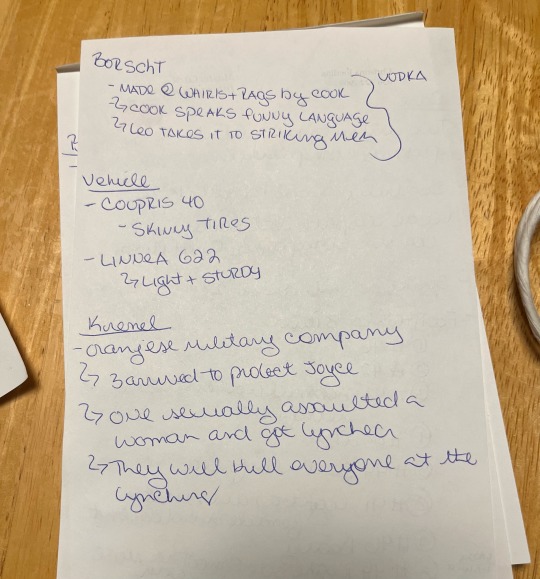 BORSCHT
- MADE @ WHIRLS+RAGS by COOK
↳ COOK SPEAKS FUNNY LANGUAGE
↳ LEO TAKES IT TO STRIKING MEN
VODKA
Vehicle
- COUPRIS 40
- SKINNY TIRES
- LINNEA 622
↳ LIGHT + STURDY
Krenel
- oranjese military company
↳ 3 arrived to protect Joyce
↳ one sexually assaulted a
woman and got lynched
↳ They will kill everyone at the
lynching